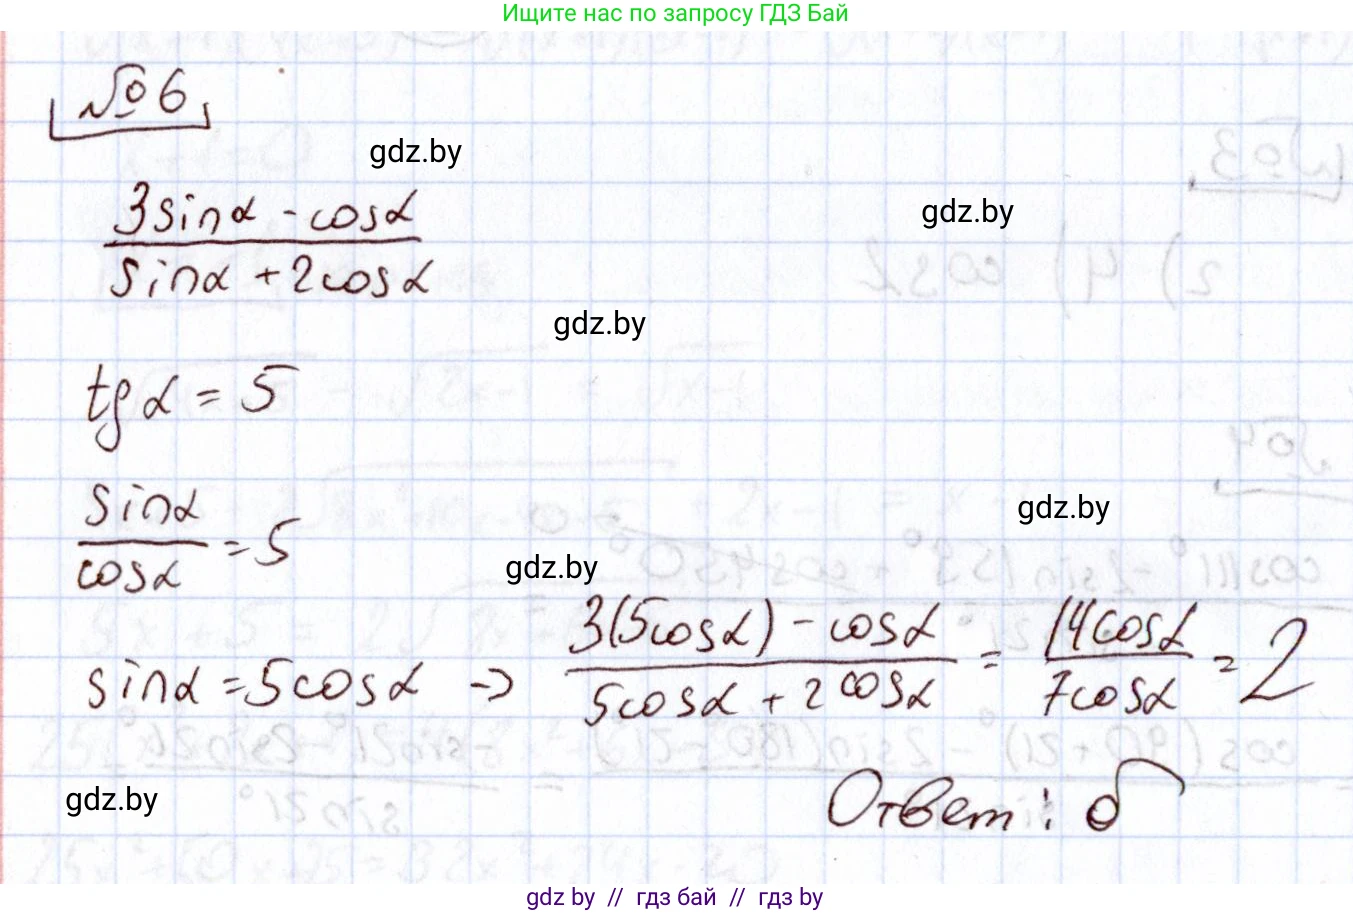 Ищите нас по запросу ГДЗ Бай
№6
gdz.by
3sinα - cosα
sinα + 2cosα
gdz.by
gdz.by
tgα = 5
sinα
cosα
= 5
gdz.by
gdz.by
sinα = 5cosα → 3(5cosα) - cosα / 5cosα + 2cosα = 14cosα / 7cosα = 2
gdz.by
Ответ: б
gdz.by // гдз бай // гдз by